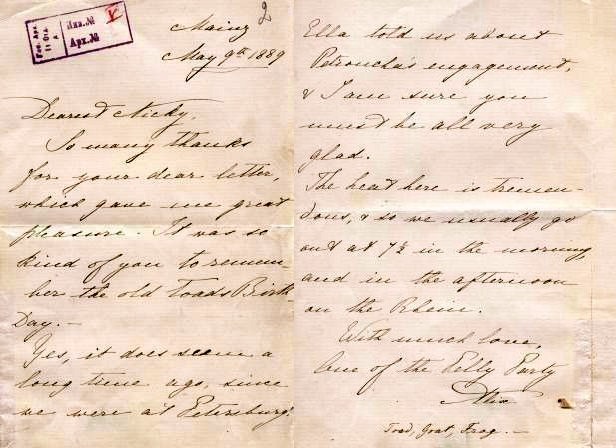 2
Инв.№
Арх.№
Mainz
May 9th 1889
Dearest Nicky,
So many thanks
for your dear letter,
which gave me great
pleasure. It was so
kind of you to remem-
ber the old Toads Birth
Day.—
Yes, it does seem a
long time ago, since
we were at Petersburg.
Ella told us about
Petroucha's engagement,
& I am sure you
must be all very
glad.
The heat here is tremen-
dous, & so we usually go
out at 7½ in the morning
and in the afternoon
on the Rhein.
With much love,
One of the Pelly Party
Alix
Toad, Goat, Frog.—